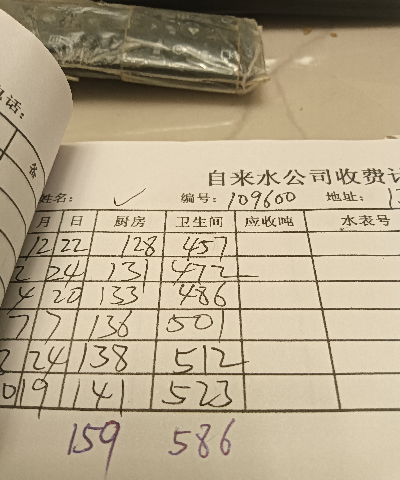 电话:
自来水公司收费
姓名: ✓ 编号: 109600 地址:
月 日 厨房 卫生间 应收吨 水表号
12 22 128 457
2 24 131 472
4 20 133 486
7 7 136 501
24 138 512
19 141 523
159 586